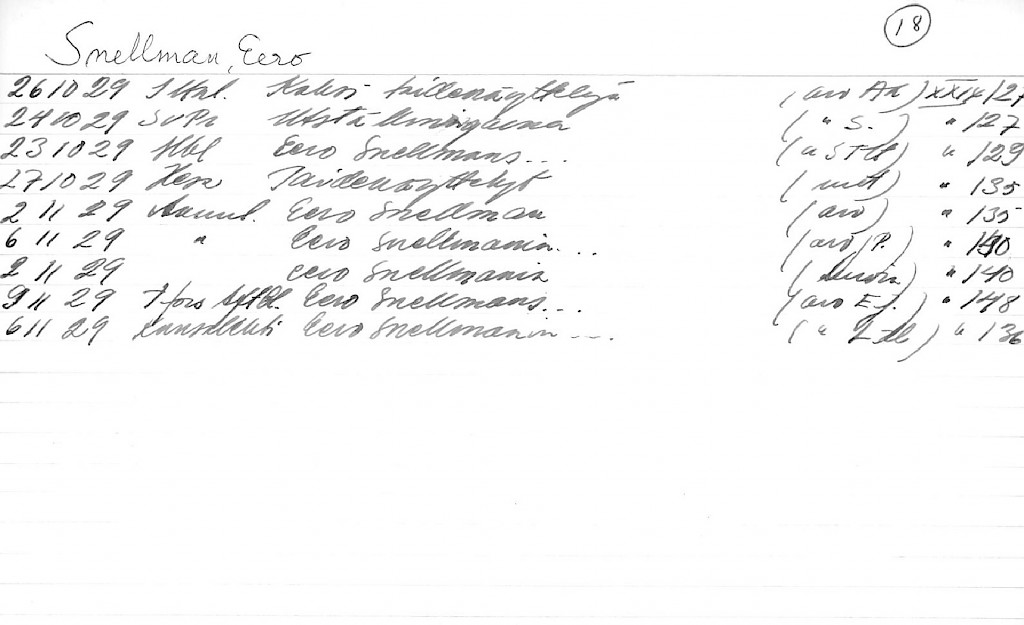 18
Snellman, Eero
26 10 29 Kaksi taidenäyttelyä (arv AA) XXIX/127
24 10 29 SvPr Utställningarna ( " S. ) " 127
23 10 29 Hbl Eero Snellmans... ( " STH ) " 129
27 10 29 Taidenäyttelyt ( " 135
2 11 29 Eero Snellman (arv) " 135
6 11 29 " Eero Snellmanin... (arv /P.) "
2 11 29 eero Snellmanin " 140
9 11 29 Tfors Aftbl. Eero Snellmans... (arv E.J. " 148
6 11 29 Eero Snellmanin .... ( " ) " 136